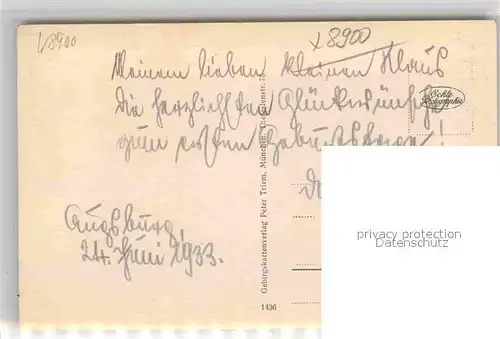 V8900
x 8900
Meinem lieben kleinen Klaus
die herzlichsten Glückwünsche
zum ersten Geburtstage!
Echte
Photographie
Gebirgskartenverlag Peter Triem, München,
1436
Augsburg,
24. Juni 1933.
privacy protection
Datenschutz